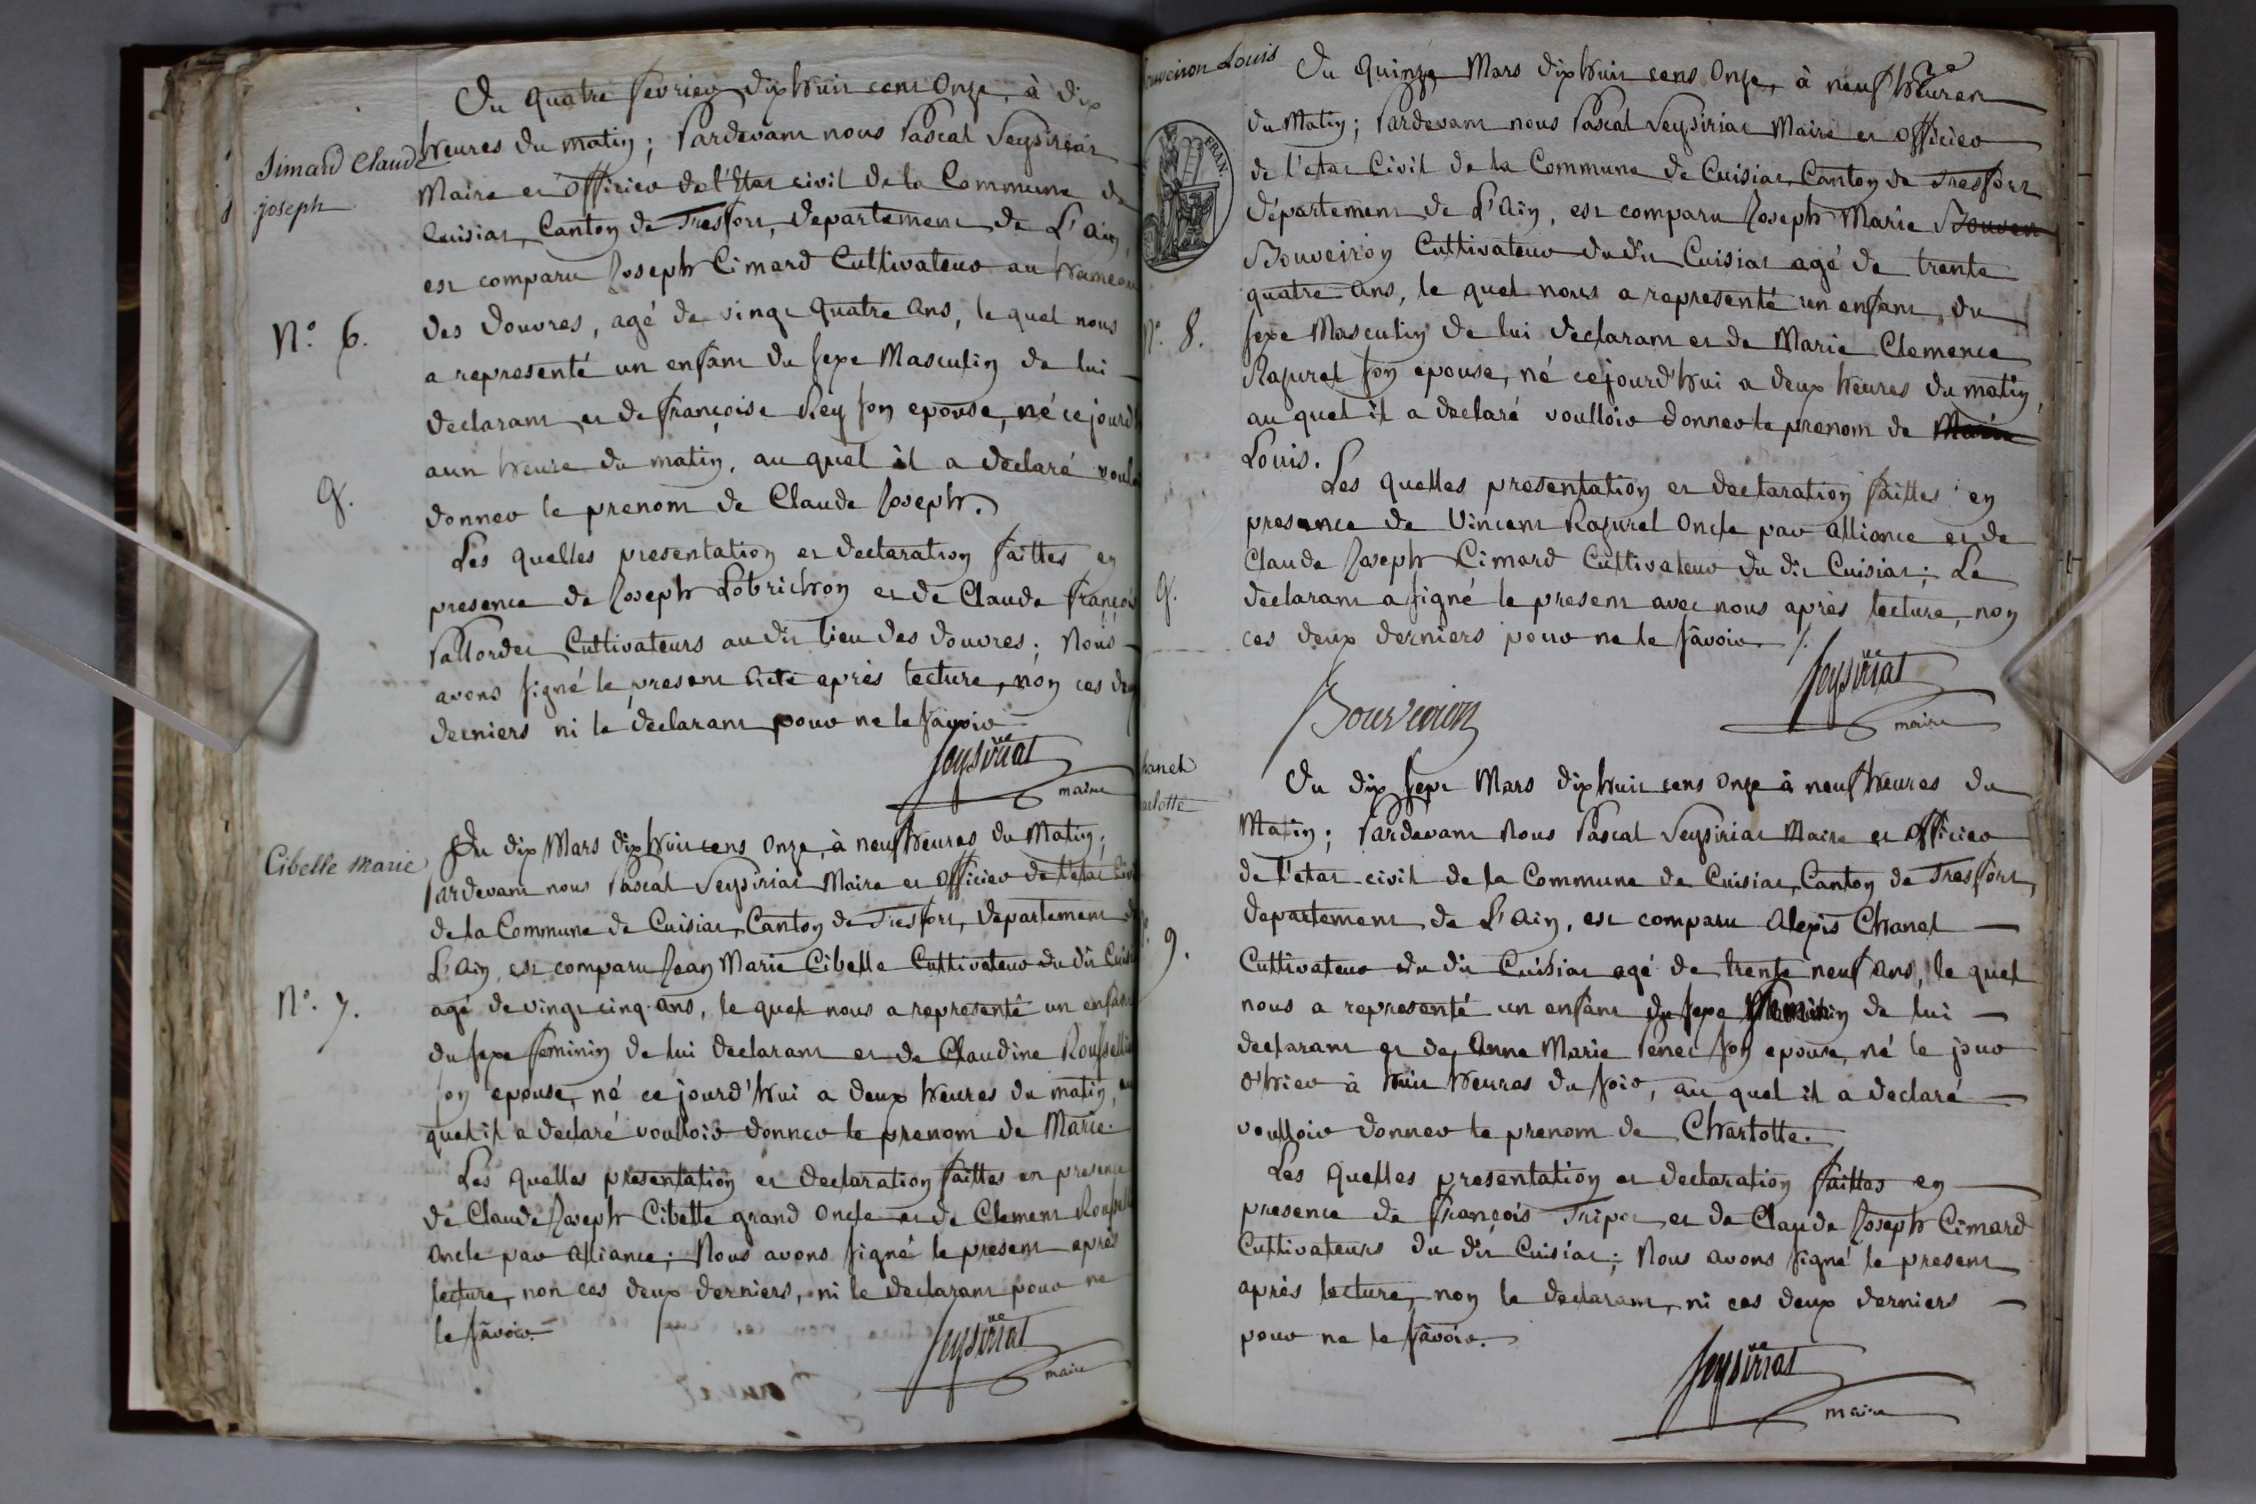 Simard Claude
joseph
N.° 6.
g.
Du quatre fevrier dix huit cent onze, à dix
heures du matin; Pardevant nous Pascal Seysiriat
Maire et officier de l'Etat civil de la Commune de
Cuisiat, Canton de Tresfort, departement de L'ain,
est comparu Joseph Cimard Cultivateur au hameau
des Douvres, agé de vingt quatre ans, le quel nous
a representé un enfant du sexe Masculin de lui
declarant et de françoise Rey son epouse, né ce jourd'h
a un heure du matin, au quel il a declaré voul
donner le prenom de Claude Joseph.
Les quelles presentation et declaration faittes en
presence de Joseph Lobrichon et de Claude françois
Pallordet Cultivateurs au dit lieu des Douvres; Nous
avons signé le present Acte après lecture, non ces deux
derniers ni le declarant pour ne le savoir
Seysiriat
maire
Cibelle Marie
N.° 7.
Du dix Mars dix huit cens onze, à neuf heures du Matin;
Pardevant nous Pascal Seysiriat Maire et officier de l'etat Civil
de la Commune de Cuisiat, Canton de Tresfort, departement de
L'Ain, est comparu Jean Marie Cibelle Cultivateur du dit Cuisi
agé de vingt cinq ans, le quel nous a representé un enfant
du sexe feminin de lui declarant et de Claudine Rousselli
son epouse, né ce jourd'hui a deux heures du matin, au
quel il a declaré voulloir donner le prenom de Marie.
Les quelles presentation et declaration faittes en presence
de Claude Joseph Cibelle grand oncle et de Clement Roussell
oncle par alliance; Nous avons signé le present après
lecture, non ces deux derniers, ni le declarant pour ne
le savoir.
Seysiriat
maire
ouveiron Louis
FRAN.
N.° 8.
g.
Du quinze Mars dix huit cens onze, à neuf heures
du Matin; Pardevant nous Pascal Seysiriat Maire et officier
de l'etat Civil de la Commune de Cuisiat, Canton de Tresfort
département de L'Ain, est comparu Joseph Marie Bouven
Bouveiron Cultivateur du dit Cuisiat agé de trente
quatre ans, le quel nous a representé un enfant, du
sexe Masculin de lui declarant et de Marie Clemence
Rapurel son epouse, né ce jourd'hui a deux heures du matin,
au quel il a declaré voulloir donner le prenom de Marie
Louis.
Les quelles presentation et declaration faittes en
presence de Vincent Rapurel oncle par alliance et de
Claude Joseph Cimard Cultivateur du dit Cuisiat; Le
declarant a signé le present avec nous après lecture, non
ces deux derniers pour ne le savoir /.
Seysiriat
maire
Bouveiron
hanel
arlotte
9.
Du dix sept Mars dix huit cens onze à neuf heures du
Matin; Pardevant Nous Pascal Seysiriat Maire et officier
de l'etat civil de la Commune de Cuisiat, Canton de Tresfort,
departement de L'Ain, est comparu Alexis Chanel
Cultivateur du dit Cuisiat agé de trente neuf ans, le quel
nous a representé un enfant du sexe feminin de lui
declarant et de Anne Marie Penet son epouse, né le jour
d'hier à huit heures du soir, au quel il a declaré
voulloir donner le prenom de Charlotte.
Les quelles presentation et declaration faittes en
presence de François Tripoz et de Claude Joseph Cimard
Cultivateurs du dit Cuisiat; Nous avons signé le present
après lecture, non le declarant, ni ces deux derniers
pour ne le savoir.
Seysiriat
maire